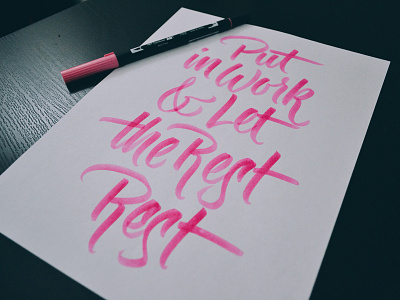 Put
in Work
& Let
the Rest
Rest